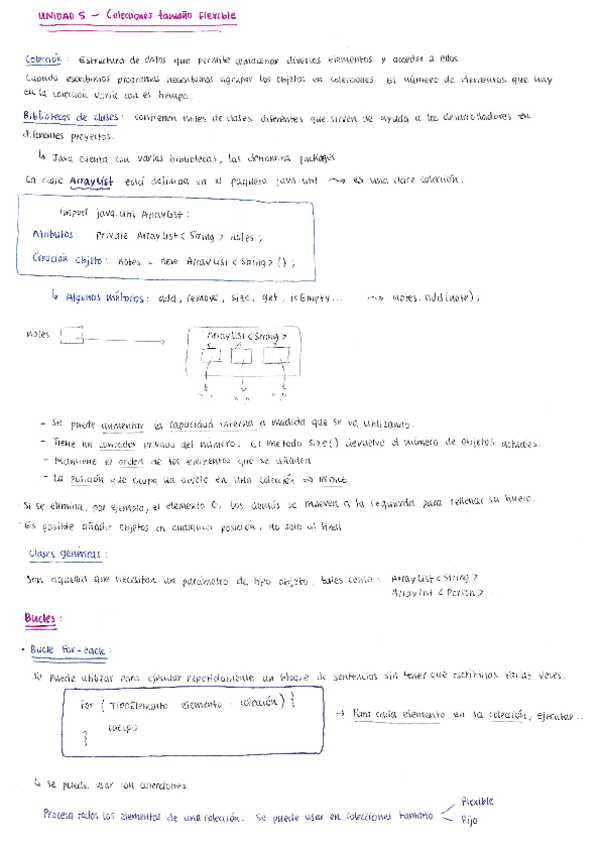 UNIDAD 5 - Colecciones tamaño Flexible
Colección: Estructura de datos que permite almacenar diversos elementos y acceder a ellos.
Cuando escribimos programas necesitamos agrupar los objetos en colecciones. El número de elementos que hay
en la colección varía con el tiempo.
Bibliotecas de clases: contienen miles de clases diferentes que sirven de ayuda a los desarrolladores en
diferentes proyectos.
↳ Java cuenta con varias bibliotecas, las denomina packages
La clase ArrayList está definida en el paquete java.util ⤳ es una clase colección.
import java.util.ArrayList;
Atributos: private ArrayList<String> notes;
Creación objeto: notes = new ArrayList<String>();
↳ Algunos métodos: add, remove, size, get, isEmpty... ⤳ notes.add(note);
notes
ArrayList<String>
- Se puede aumentar la capacidad interna a medida que se va utilizando.
- Tiene un contador privado del número. El método size() devuelve el número de objetos actuales.
- Mantiene el orden de los elementos que se añaden
- La posición que ocupa un objeto en una colección ⇒ índice
· Si se elimina, por ejemplo, el elemento 0, los demás se mueven a la izquierda para rellenar su hueco.
· Es posible añadir objetos en cualquier posición, no solo al final
Clases genéricas:
Son aquellas que necesitan un parámetro de tipo objeto, tales como: ArrayList<String>
ArrayList<Person>.
Bucles:
• Bucle for-each:
Se puede utilizar para ejecutar repetidamente un bloque de sentencias sin tener que escribirlas varias veces.
for (TipoElemento elemento : colección) {
cuerpo
}
→ Para cada elemento en la colección, ejecutar...
↳ se puede usar con colecciones
Procesa todos los elementos de una colección. Se puede usar en colecciones tamaño
Flexible
Fijo